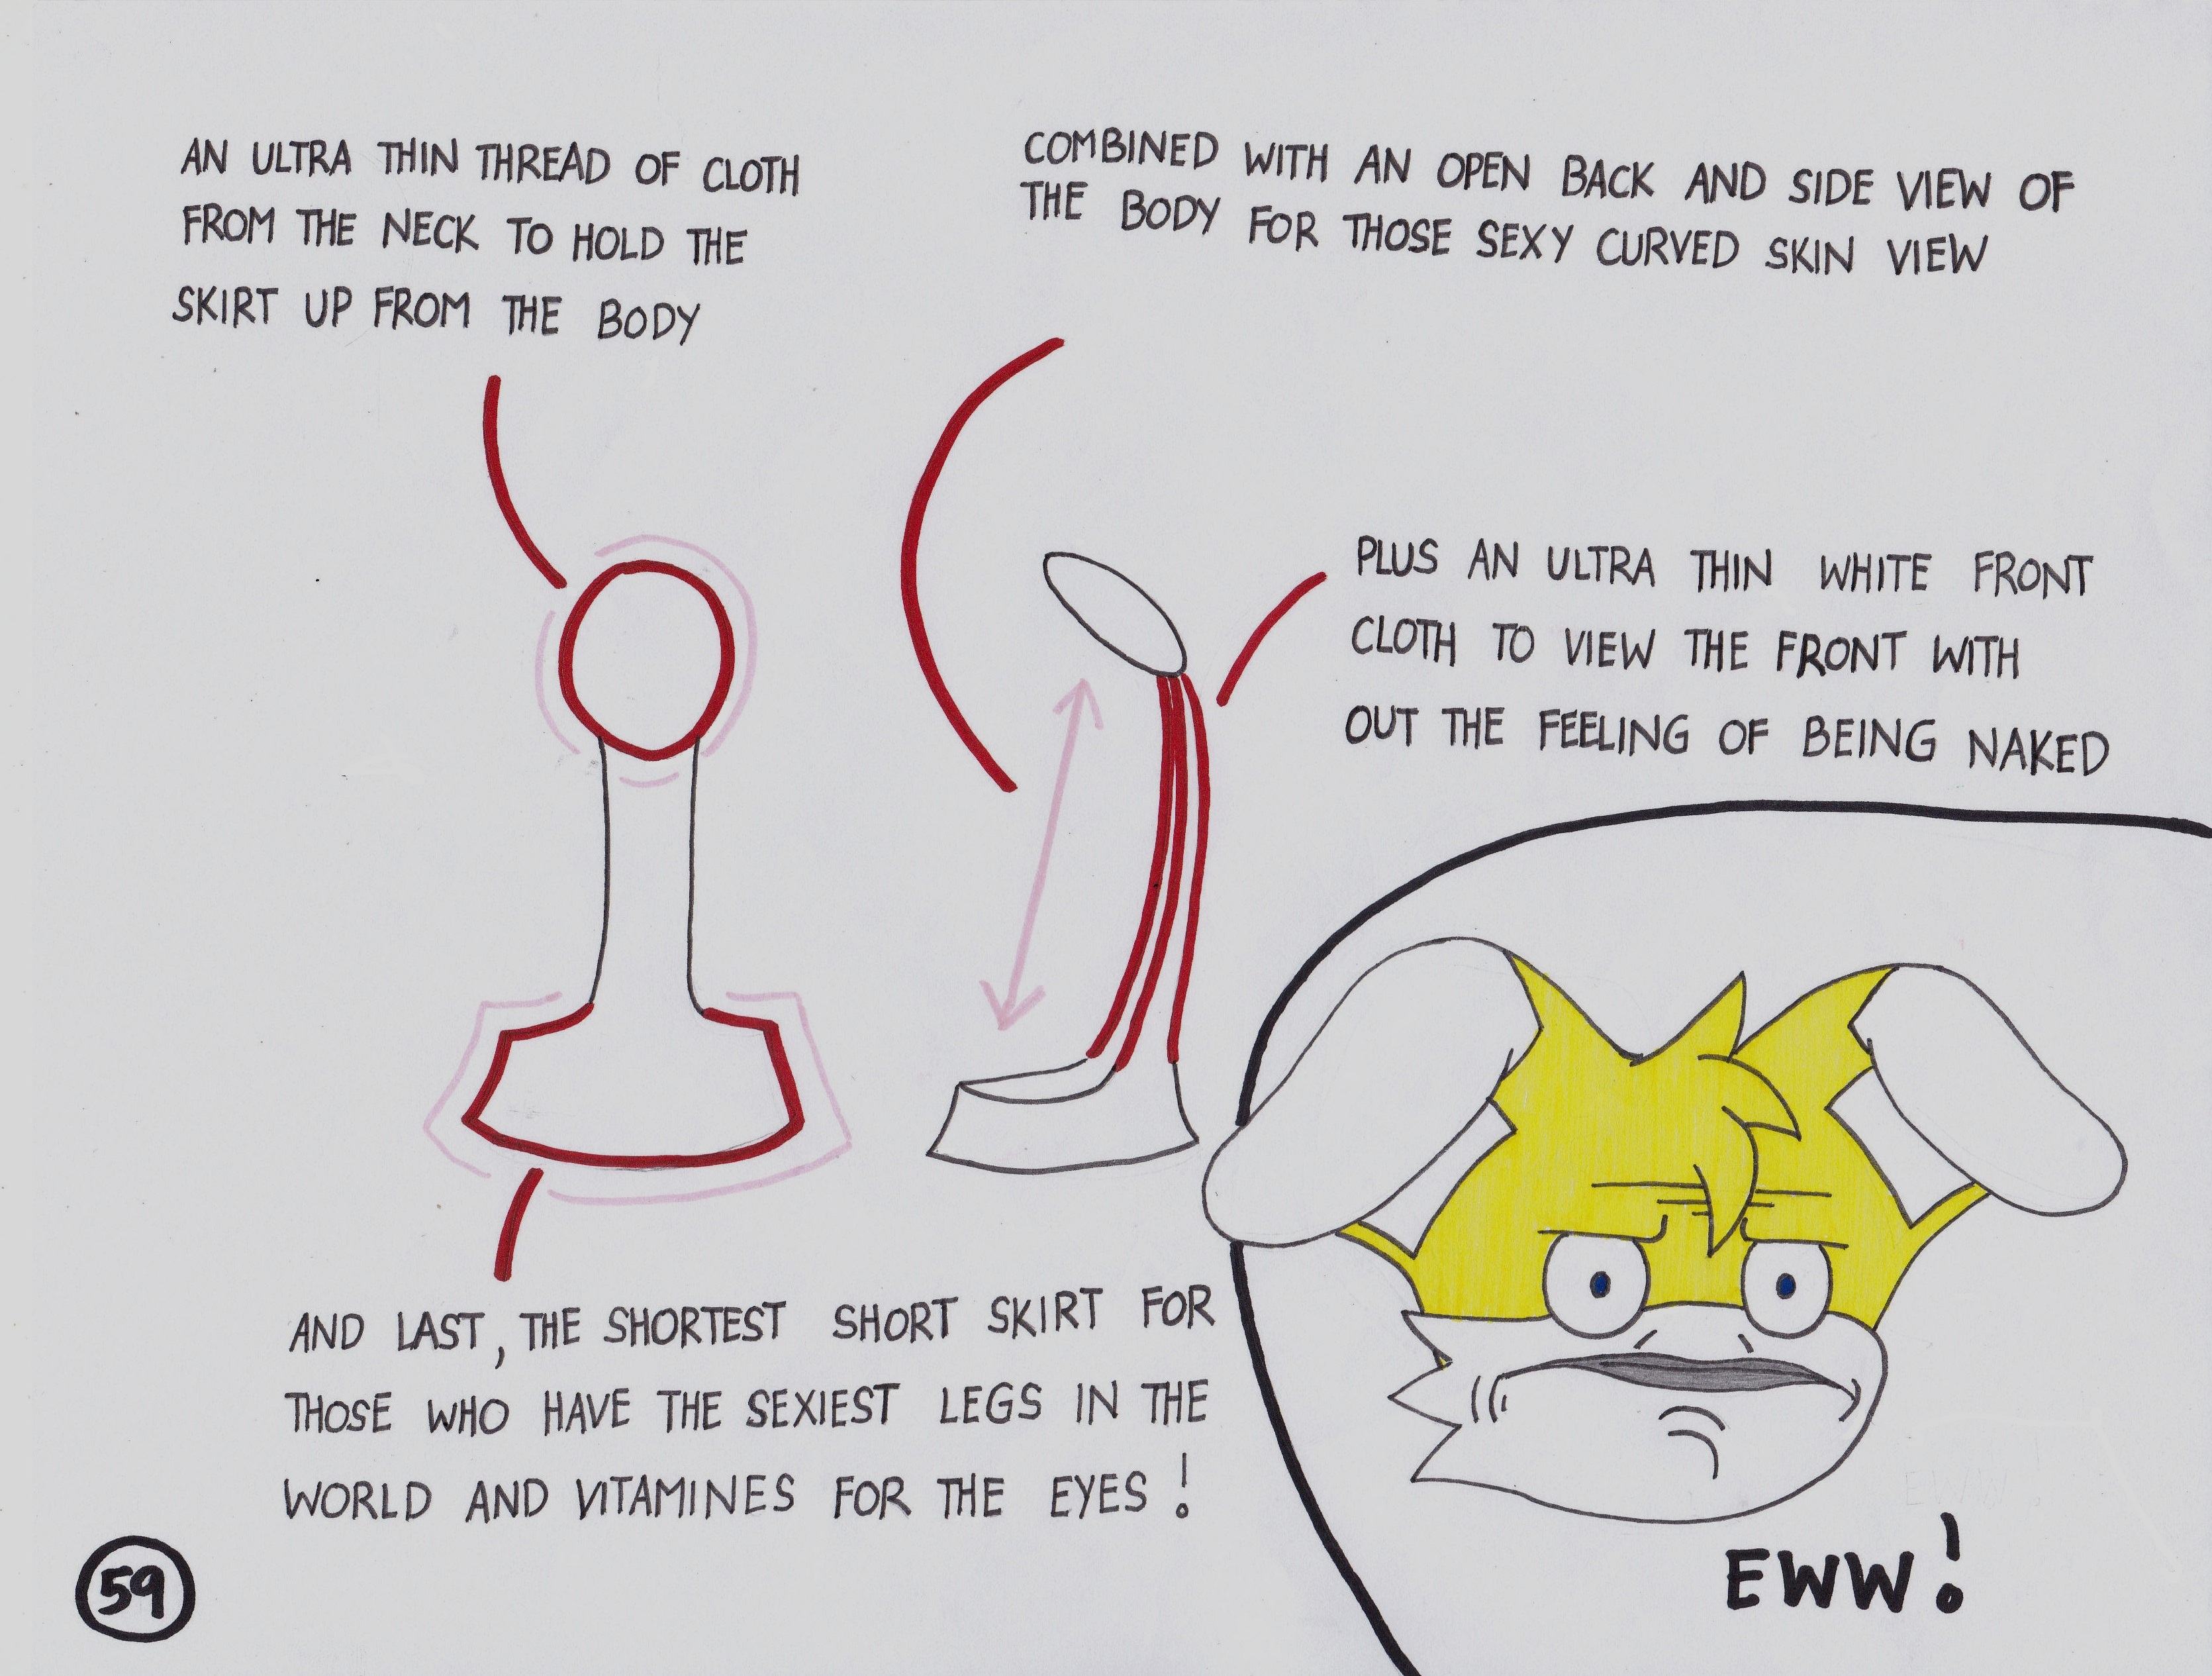 AN ULTRA THIN THREAD OF CLOTH
FROM THE NECK TO HOLD THE
SKIRT UP FROM THE BODY
COMBINED WITH AN OPEN BACK AND SIDE VIEW OF
THE BODY FOR THOSE SEXY CURVED SKIN VIEW
PLUS AN ULTRA THIN WHITE FRONT
CLOTH TO VIEW THE FRONT WITH
OUT THE FEELING OF BEING NAKED
AND LAST, THE SHORTEST SHORT SKIRT FOR
THOSE WHO HAVE THE SEXIEST LEGS IN THE
WORLD AND VITAMINES FOR THE EYES!
EWW!
59